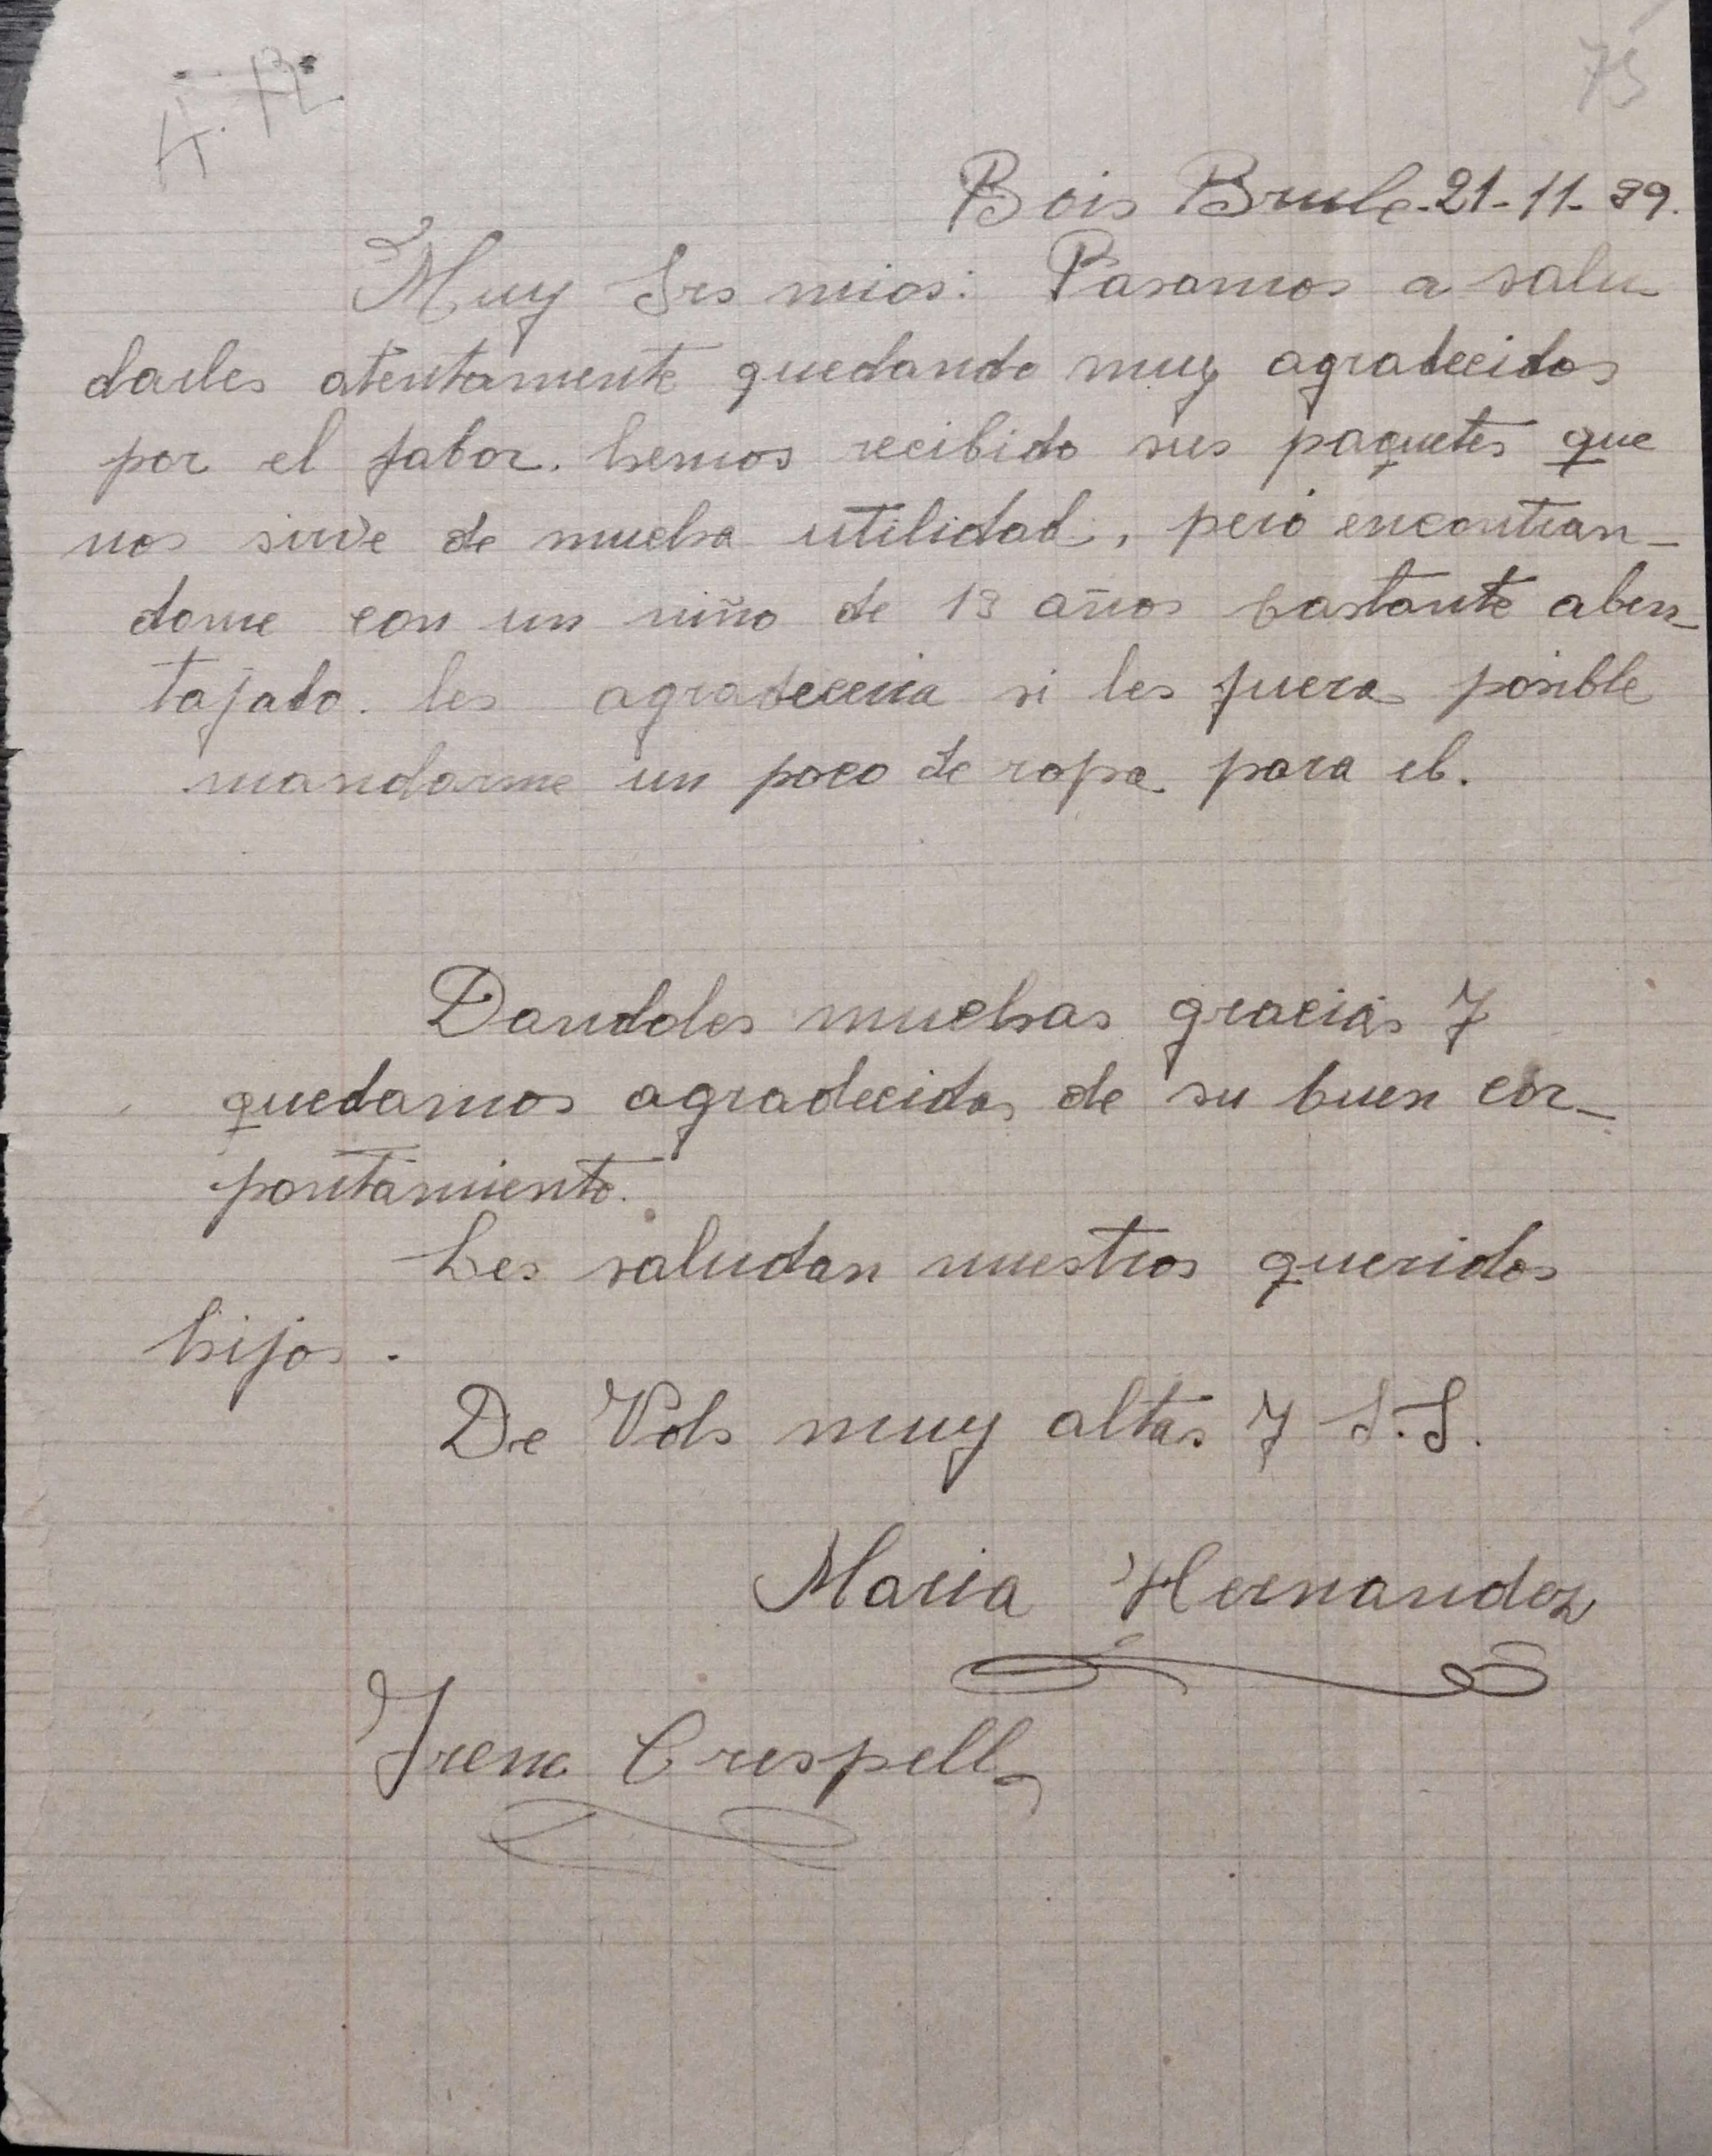 75
Bois Brule-21-11-39.
Muy Srs mios: Pasamos a salu-
darles atentamente quedando muy agradecidos
por el fabor. hemos recibido sus paquetes que
nos sirve de mucha utilidad, pero encontran-
dome con un niño de 13 años bastante aben-
tajado. les agradeceria si les fuera posible
mandarme un poco de ropa para el.
Dandoles muchas gracias y
quedamos agradecidos de su buen cor-
pontamiento.
Les saludan nuestros queridos
hijos.
De Vds muy altas y S.S.
Maria Hernandez
Irene Crespell